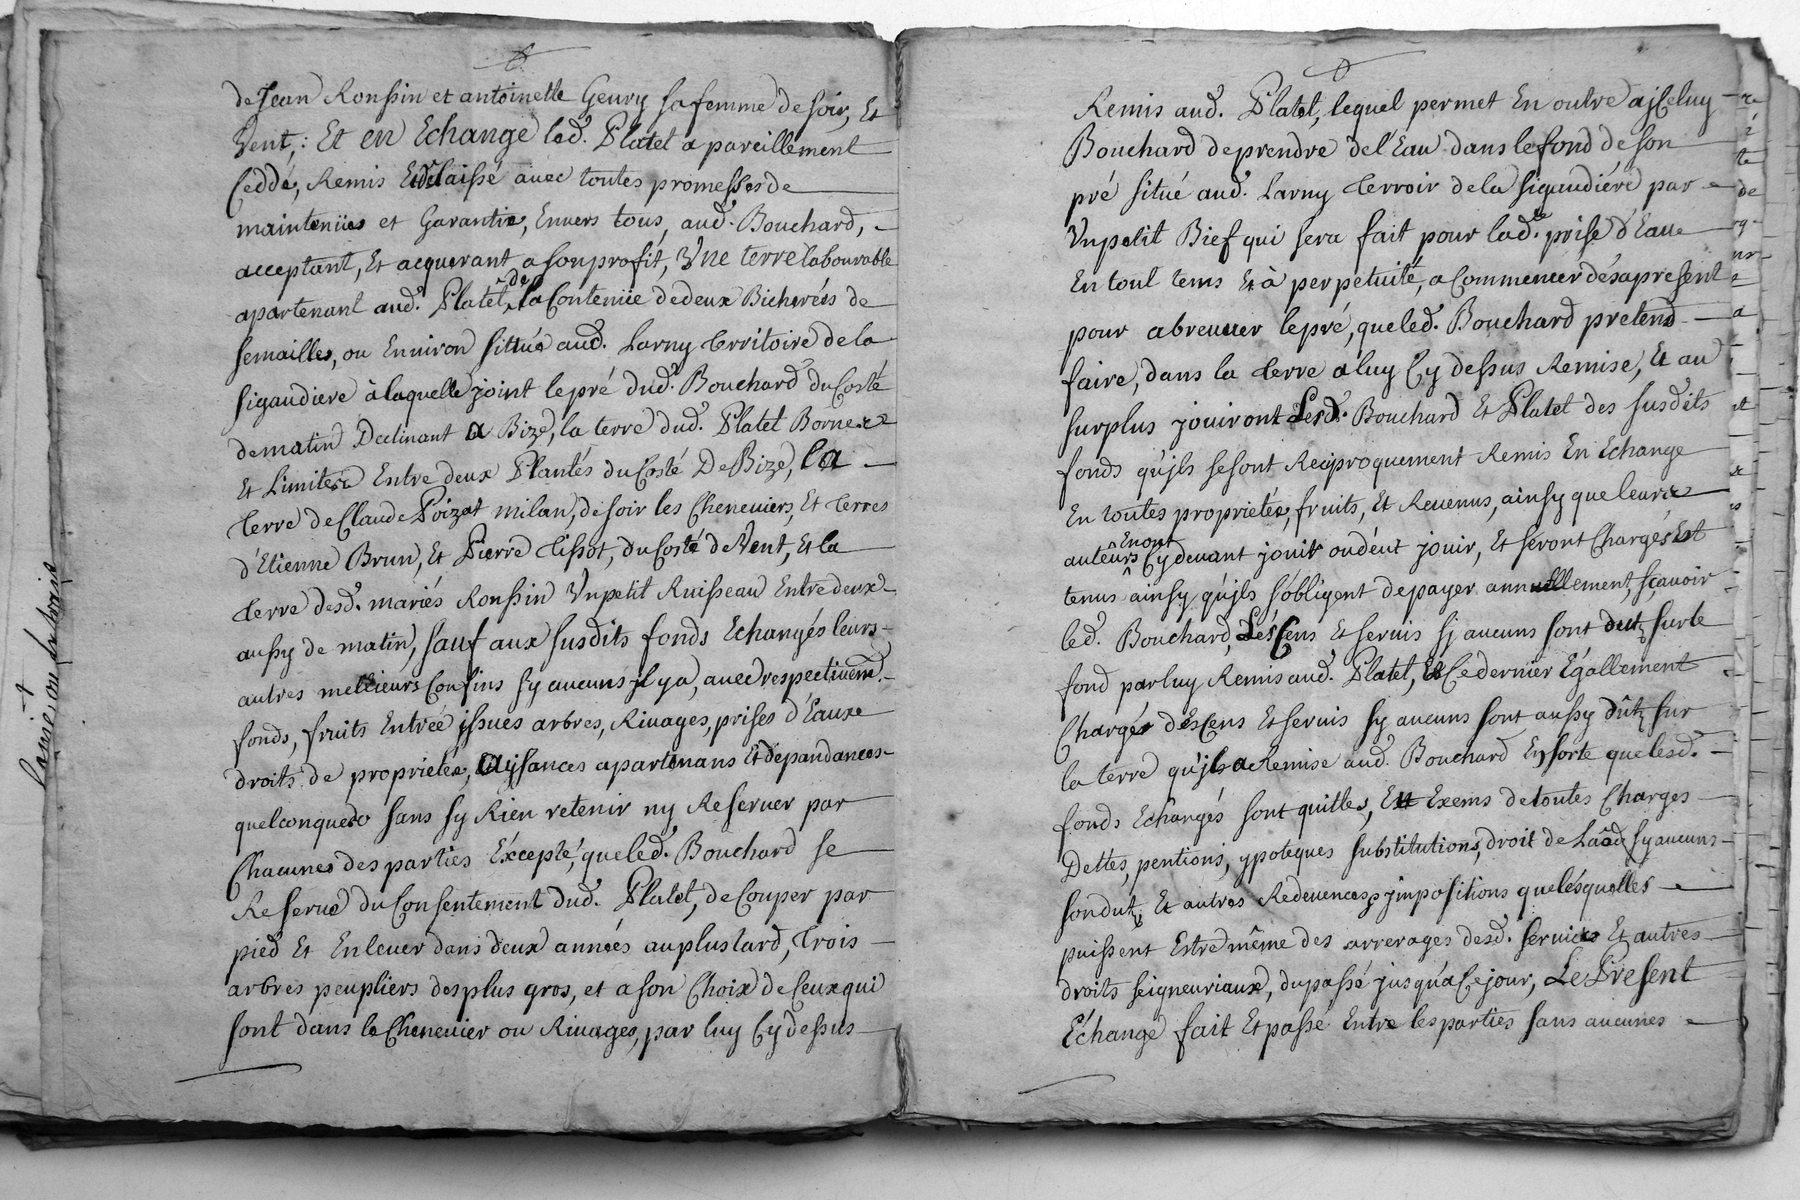 de Jean Ronssin et antoinette Geury sa femme de soir, Et
Vent,: Et en Echange led. Platet a pareillement
Ceddé, Remis Et delaissé avec toutes promesses de
maintenües et Garantie, Enuers tous, aud. Bouchard,
acceptant, Et acquerant a son profit, Vne terre labourable
apartenant aud. Platet, de la Contenüe de deux Bicherées de
semailles, ou Enuiron sittuée aud. Larny territoire de la
sigaudiere à laquelle joint le pré dud. Bouchard du Costé
de matin Declinant a Bize, la terre dud. Platet Bornée
Et Limitée Entre deux Plantés du Costé De Bize, la
terre de Claude Poizat milan, de soir les Cheneuiers, Et terres
d'Etienne Brun, Et Pierre tissot, du Costé de Vent, Et la
terre desd. mariés Ronssin Vn petit Ruisseau Entre deux
aussy de matin, sauf aux susdits fonds Echangés leurs
autres meilleurs Confins sy aucuns jl y a, auec respectiuem.
fonds, fruits Entrée issues arbres, Riuages, prises d'Eaux
droits de proprietés, aysances apartenans Et dépandances
quelconques sans sy Rien retenir ny Reseruer par
Chacunes des parties Éxcepté, que led. Bouchard se
Reserue du Consentement dud. Platet, de Couper par
pied Et Enleuer dans deux années au plus tard, trois
arbres peupliers des plus gros, et a son Choix de Ceux qui
sont dans le Cheneuier ou Riuages, par luy Cy dessus
Remis aud. Platet, lequel permet En outre a jCeluy
Bouchard de prendre de l'Eau dans le fond de son
pré situé aud. Larny terroir de la sigaudiére par
Vn petit Bief qui sera fait pour lad.te prise d'Eau
En tout tems Et à perpetuité, a Commencer dés apresent
pour abreuuer le pré, que led. Bouchard pretend
faire, dans la terre a luy Cy dessus Remise, Et au
surplus jouiront Lesd. Bouchard Et Platet des susdits
fonds qu'jls se sont Reciproquement Remis En Echange
En toutes proprietés, fruits, Et Reuenus, ainsy que leurs
auteurs En ont Cy deuant jouir ou dêut jouir, Et seront Chargés Et
tenus ainsy qu'jls s'obligent de payer annuellement, sçauoir
led. Bouchard, Lés Cens Et seruis sj aucuns sont dutz sur le
fond par luy Remis aud. Platet, Et Ce dernier Égallement
Chargés dés Cens Et seruis sy aucuns sont aussy dûtz sur
la terre qu'jl a Remise aud. Bouchard En sorte que lesd.
fonds Echangés sont quittes, Et Exems de toutes Charges
Dettes, pentions, ypoteques substitutions, droit de Laods sy aucuns
son dutz Et autres Redeuences, jmpositions quelésquelles
puissent Estre même des arrerages desd. seruices Et autres
droits seigneuriaux, du passé jusqu'a Ce jour, Le Present
Echange fait Et passé Entre les parties sans aucunes